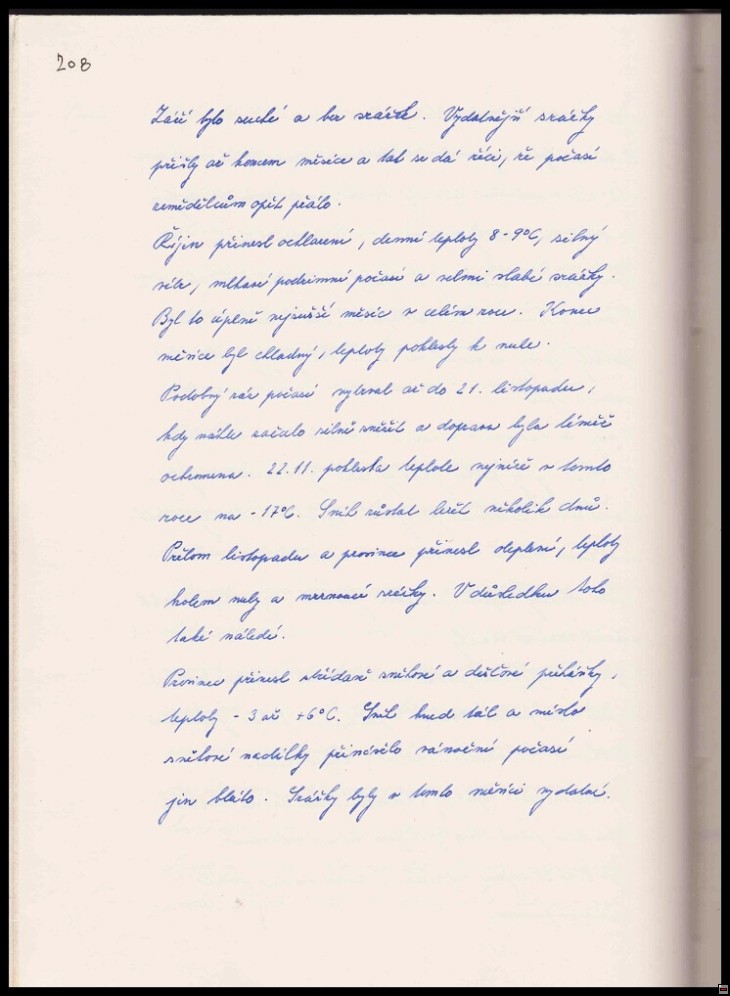 208
Září bylo suché a bez srážek. Vydatnější srážky
přišly až koncem měsíce a tak se dá říci, že počasí
zemědělcům opět přálo.
Říjen přinesl ochlazení, denní teploty 8-9°C, silný
vítr, mlhavé podzimní počasí a velmi slabé srážky.
Byl to úplně nejsušší měsíc v celém roce. Konec
měsíce byl chladný, teploty poklesly k nule.
Podobný ráz počasí vytrval až do 21. listopadu,
kdy náhle začalo silně sněžit a doprava byla téměř
ochromena. 22.11. poklesla teplota nejníže v tomto
roce na -17°C. Sníh zůstal ležet několik dnů.
Přelom listopadu a prosince přinesl oteplení, teploty
kolem nuly a mrznoucí srážky. V důsledku toho
také náledí.
Prosinec přinesl střídavě sněhové a dešťové přeháňky,
teploty -3 až +6°C. Sníh hned tál a místo
sněhové nadílky přineslo vánoční počasí
jen bláto. Srážky byly v tomto měsíci vydatné.